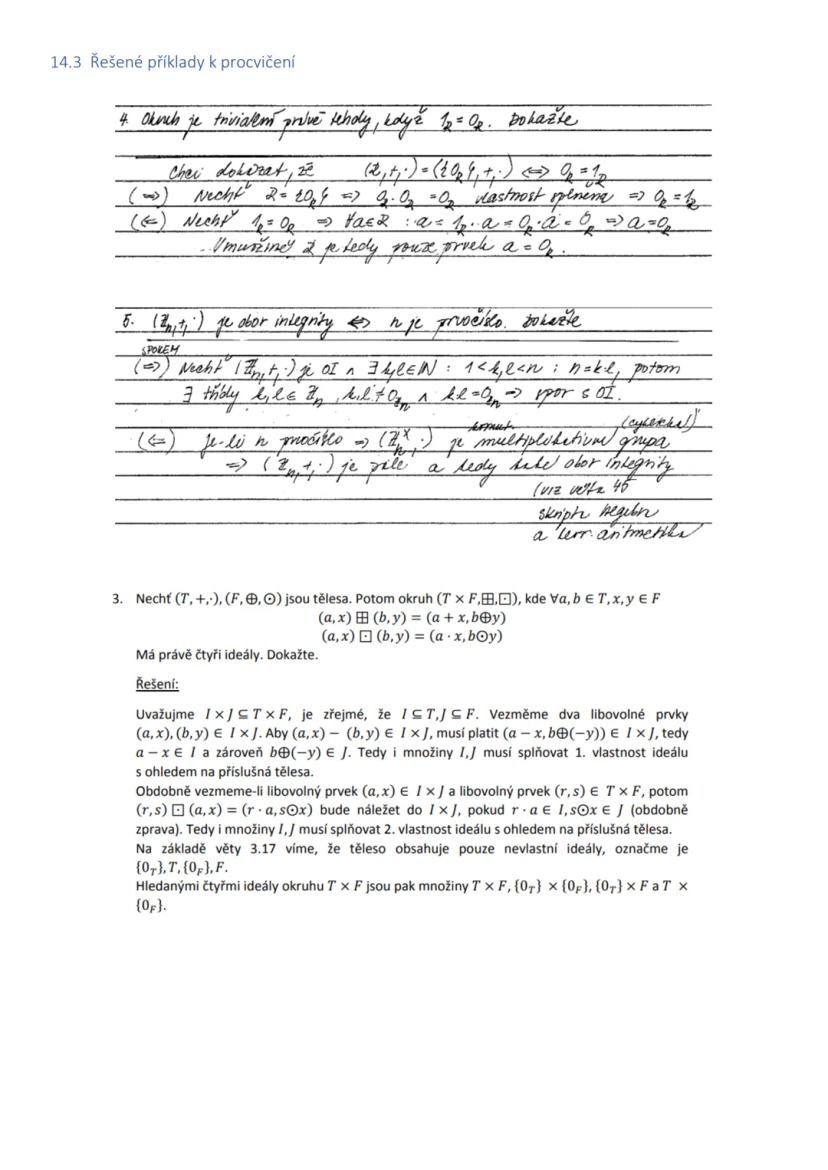 14.3 Řešené příklady k procvičení
4. Okruh je triviální právě tehdy, když 1_R = 0_R. Dokažte
Chci dokázat, že (R,+,·) = ({0_R},+,·) ⇔ 0_R = 1_R
(⇒) Nechť R = {0_R} ⇒ 0_R·0_R = 0_R vlastnost splněna ⇒ 0_R = 1_R
(⇐) Nechť 1_R = 0_R ⇒ ∀a∈R : a = 1_R·a = 0_R·a = 0_R ⇒ a = 0_R
V množině R je tedy pouze prvek a = 0_R.
5. (ℤ_n,+,·) je obor integrity ⇔ n je prvočíslo. Dokažte
SPOREM
(⇒) Nechť (ℤ_n,+,·) je OI ∧ ∃ k,l∈ℕ : 1<k,l<n : n=k·l, potom
∃ třídy k,l∈ ℤ_n, k,l ≠ 0_ℤn ∧ kl = 0_ℤn ⇒ spor s OI.
komut. (cyklická)
(⇐) Je-li n prvočíslo ⇒ (ℤ_n^×,·) je multiplikativní grupa
⇒ (ℤ_n,+,·) je pole a tedy také obor integrity
(viz věta 45
skripta Algebra
a teor. aritmetika
3. Nechť (T,+,·), (F,⊕,⊙) jsou tělesa. Potom okruh (T × F,⊞,⊡), kde ∀a, b ∈ T, x, y ∈ F
(a, x) ⊞ (b, y) = (a + x, b⊕y)
(a, x) ⊡ (b, y) = (a · x, b⊙y)
Má právě čtyři ideály. Dokažte.
Řešení:
Uvažujme I × J ⊆ T × F, je zřejmé, že I ⊆ T, J ⊆ F. Vezměme dva libovolné prvky
(a, x), (b, y) ∈ I × J. Aby (a, x) − (b, y) ∈ I × J, musí platit (a − x, b⊕(−y)) ∈ I × J, tedy
a − x ∈ I a zároveň b⊕(−y) ∈ J. Tedy i množiny I, J musí splňovat 1. vlastnost ideálu
s ohledem na příslušná tělesa.
Obdobně vezmeme-li libovolný prvek (a, x) ∈ I × J a libovolný prvek (r, s) ∈ T × F, potom
(r, s) ⊡ (a, x) = (r · a, s⊙x) bude náležet do I × J, pokud r · a ∈ I, s⊙x ∈ J (obdobně
zprava). Tedy i množiny I, J musí splňovat 2. vlastnost ideálu s ohledem na příslušná tělesa.
Na základě věty 3.17 víme, že těleso obsahuje pouze nevlastní ideály, označme je
{0_T}, T, {0_F}, F.
Hledanými čtyřmi ideály okruhu T × F jsou pak množiny T × F, {0_T} × {0_F}, {0_T} × F a T ×
{0_F}.